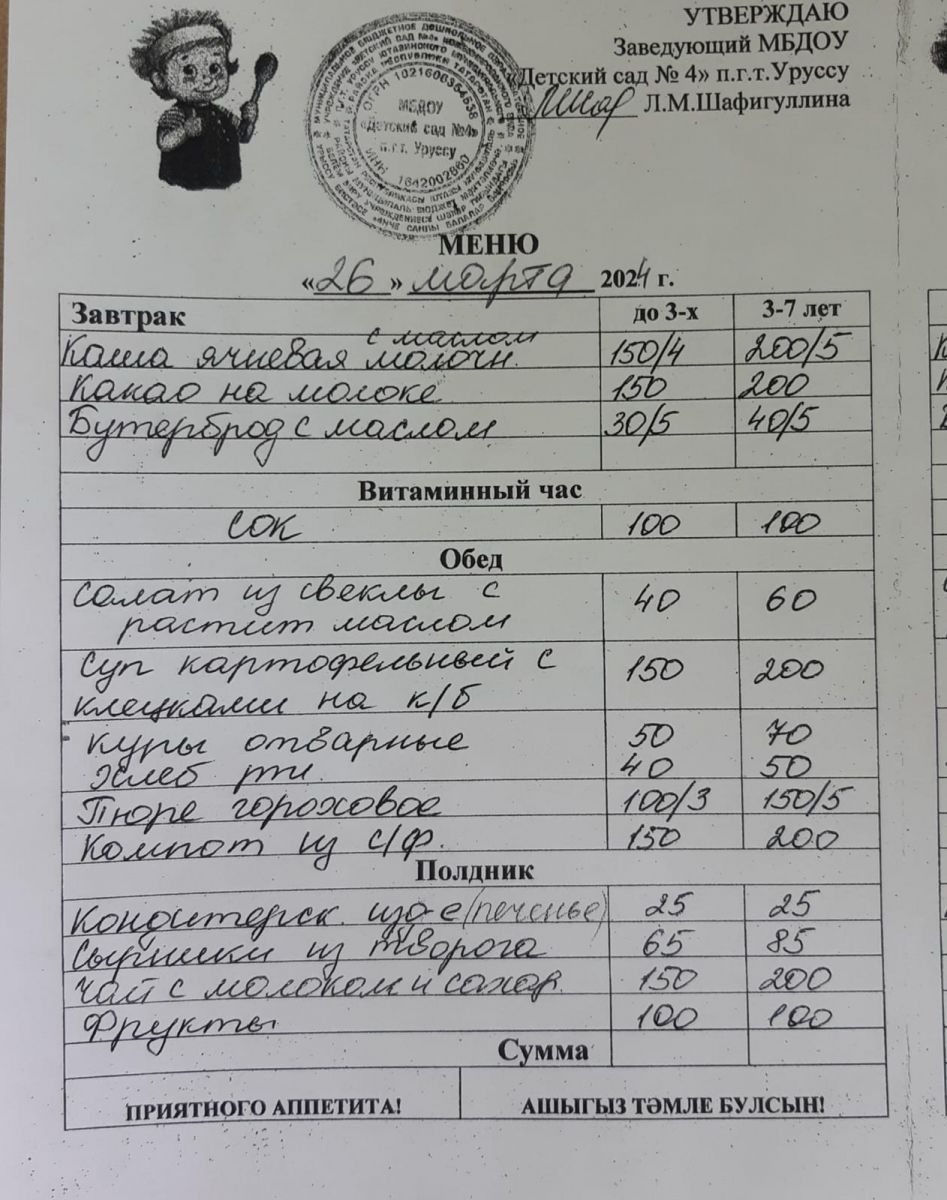 УТВЕРЖДАЮ
Заведующий МБДОУ
«Детский сад № 4» п.г.т.Уруссу
Л.М.Шафигуллина
ОГРН 1021606354538
МБДОУ
«Детский сад №4»
п.г.т. Уруссу
ИНН 1642002860
МЕНЮ
«26» марта 2024 г.
Завтрак до 3-х 3-7 лет
с маслом
Каша ячневая молочн. 150/4 200/5
Какао на молоке 150 200
Бутерброд с маслом 30/5 40/5
Витаминный час
сок 100 100
Обед
Салат из свеклы с 40 60
растит маслом
Суп картофельный с 150 200
клецками на к/б
куры отварные 50 70
хлеб рж. 40 50
Пюре гороховое 100/3 150/5
Компот из с/ф. 150 200
Полдник
Кондитерск. изд-е (печенье) 25 25
Сырники из творога 65 85
Чай с молоком и сахар. 150 200
Фрукты 100 100
Сумма
ПРИЯТНОГО АППЕТИТА! АШЫГЫЗ ТӘМЛЕ БУЛСЫН!